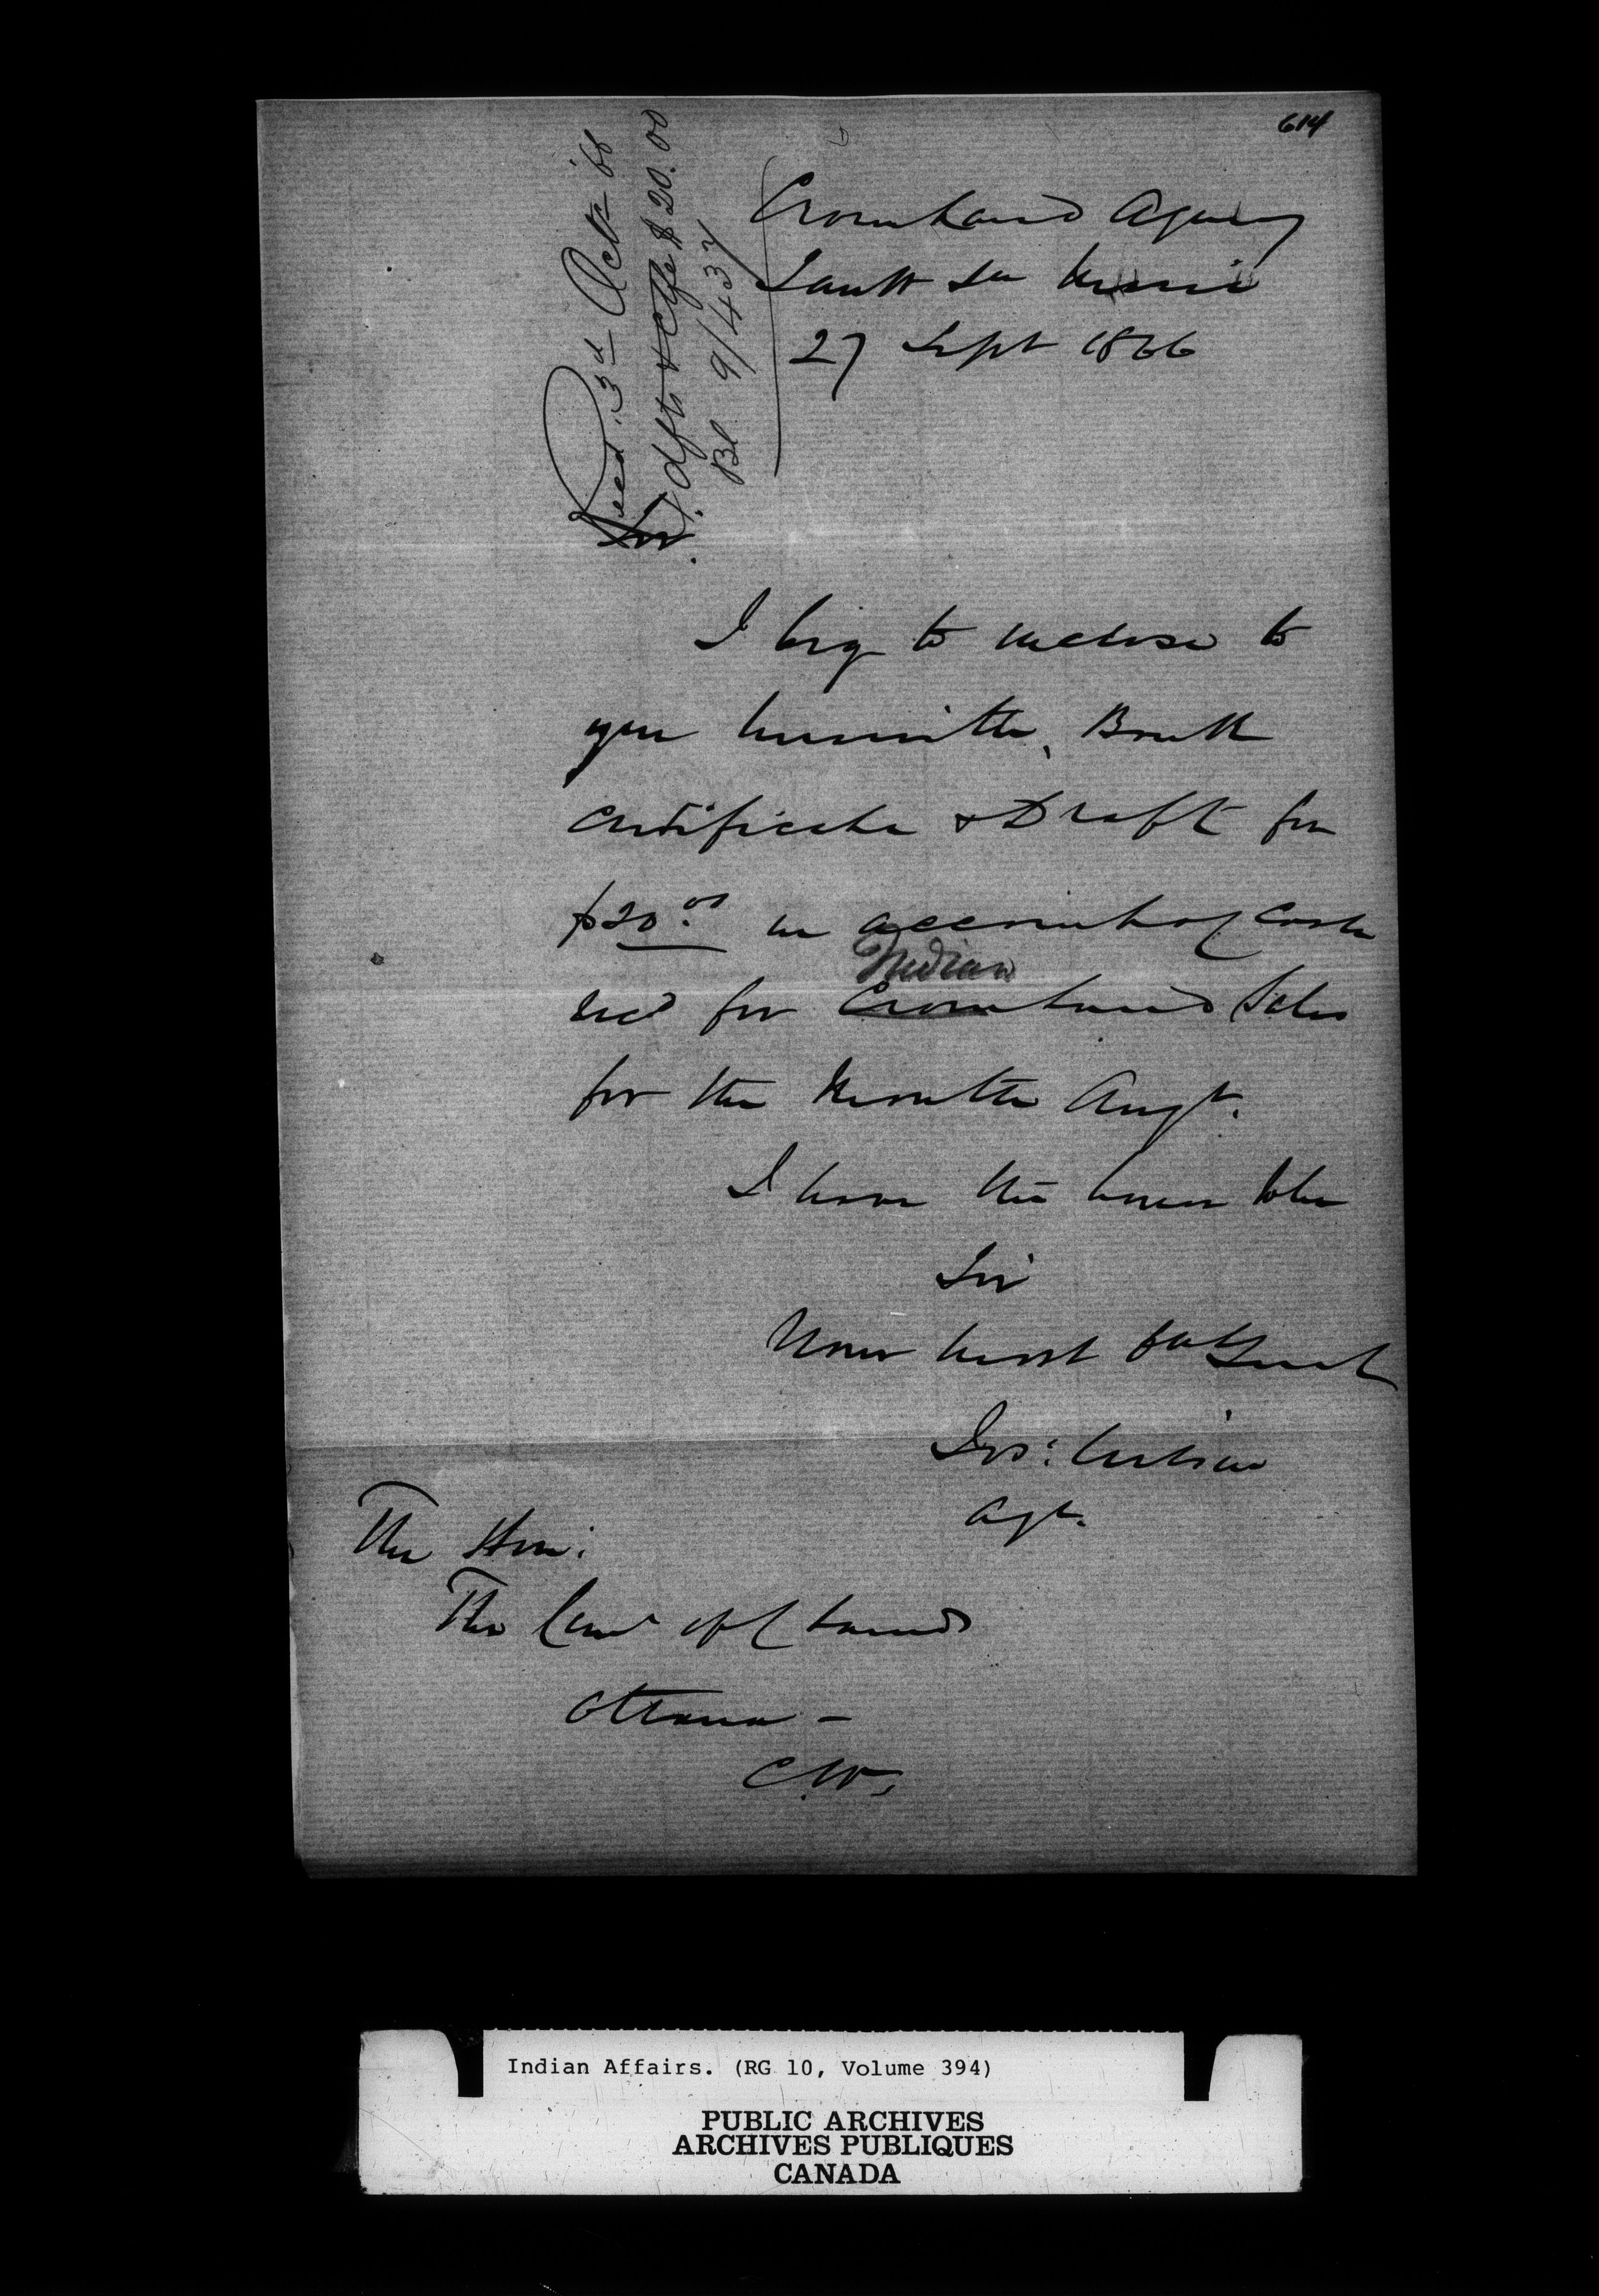 614
Crown Land Agency
Sault Ste Marie
27 Sept 1866
Recd. 3d Octr 66
dft & Ctfe $20.00
Bl 9/437
Sir.
I beg to enclose to
you herewith, Bank
certificate & Draft for
$20.00 on account of Cash
recd for Indian Crown Land Sales
for the Month Augt.
I have the honor to be
Sir
Your most obt Servt
Jos: Wilson
Agt.
The Hon:
The Comr of C Lands
Ottawa —
C.W.
Indian Affairs. (RG 10, Volume 394)
PUBLIC ARCHIVES
ARCHIVES PUBLIQUES
CANADA